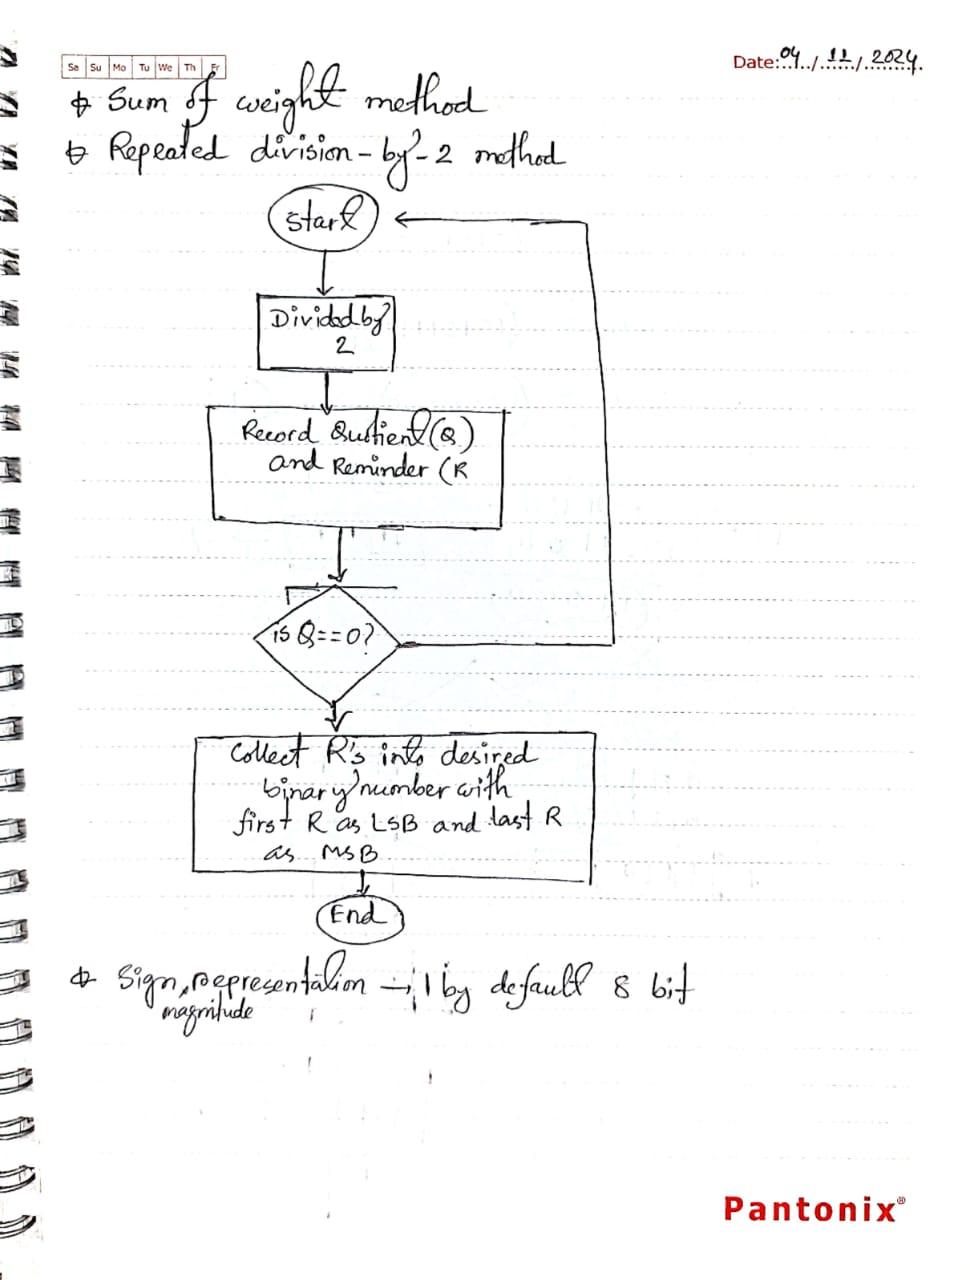 Sa Su Mo Tu We Th Fr
Date: 04/11/2024
Sum of weight method
Repeated division-by-2 method
Start
Divided by
2
Record Qustient (Q)
and Reminder (R
is Q==0?
Collect R's into desired
binary number with
first R as LSB and last R
as MSB
End
Sign, representation → by default 8 bit
magnitude
Pantonix®